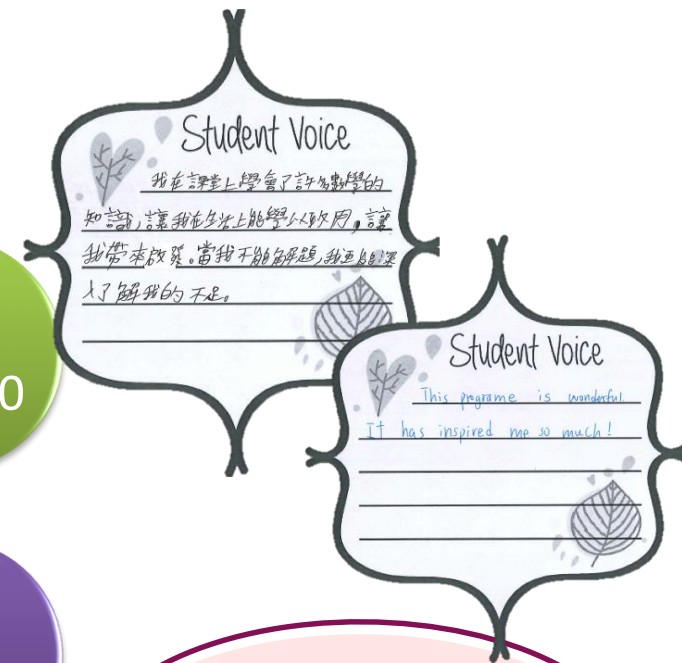 Student Voice
我在課堂上學會了許多數學的
知識,讓我在生活上能學以致用,讓
我帶來啟發。當我不能解題,我還能深
入了解我的不足。
0
Student Voice
This programe is wonderful.
It has inspired me so much!